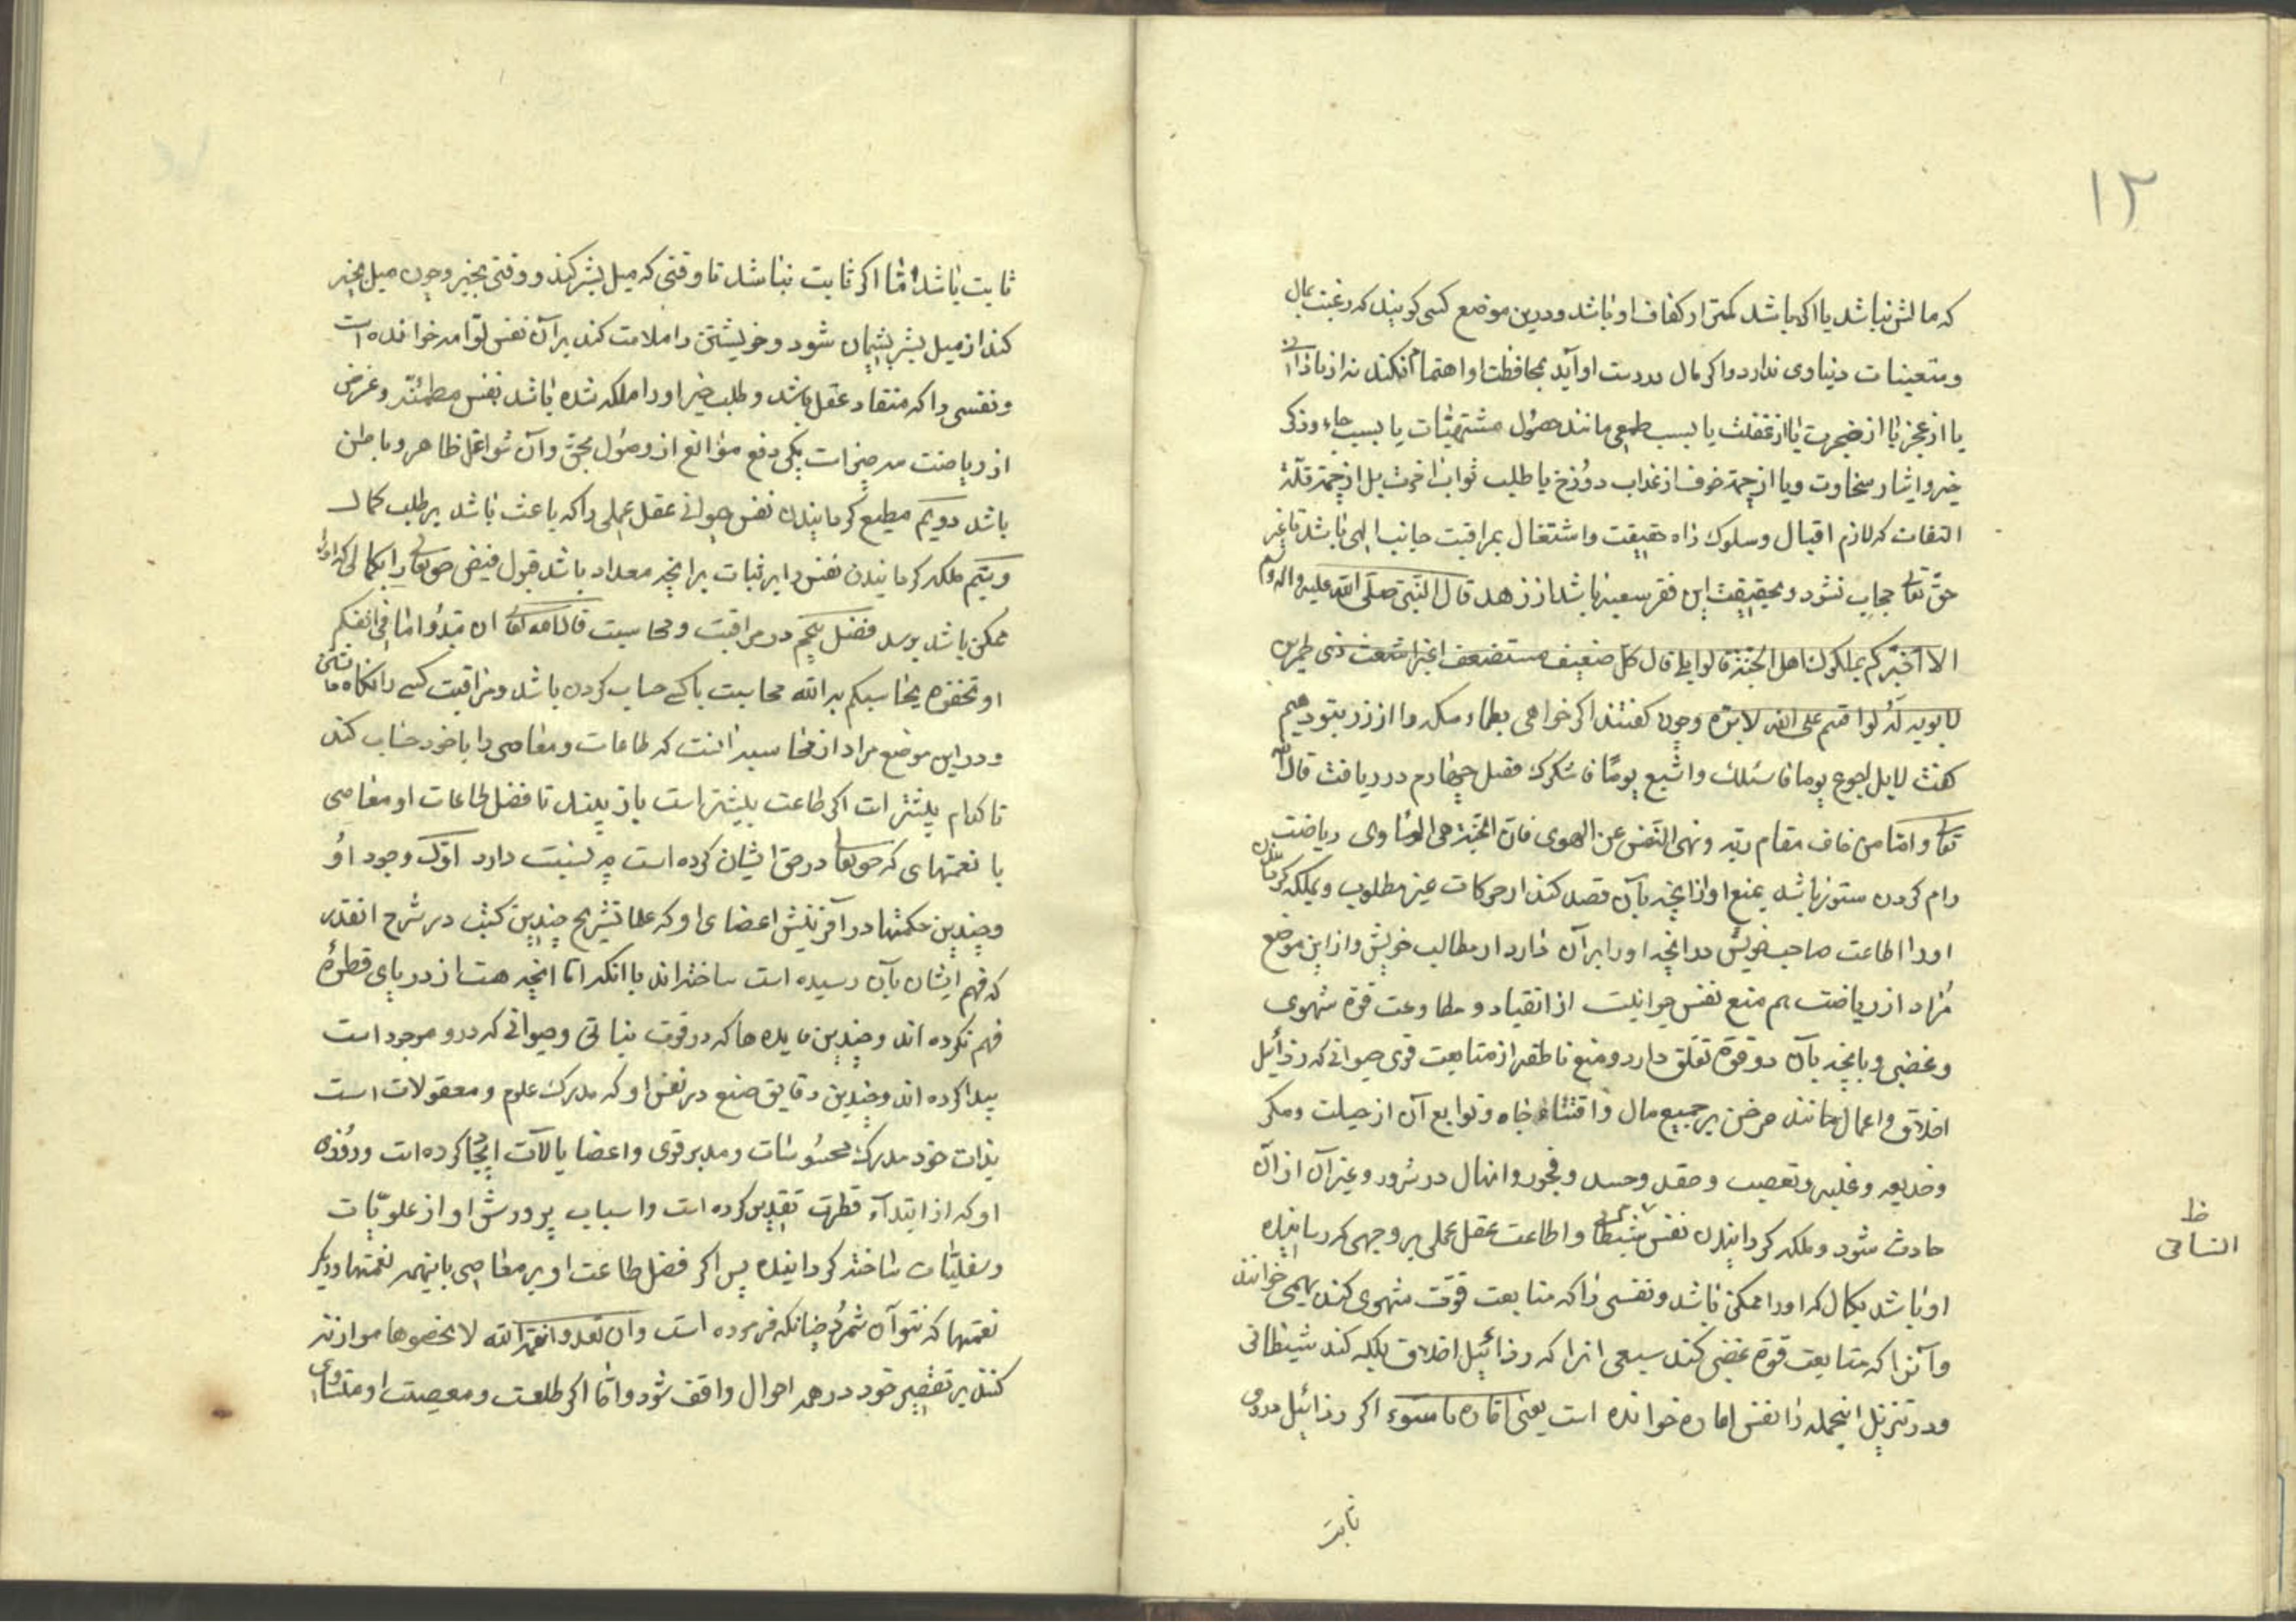 ۱۲
که مالش نباشد یا اگر باشد کمتر از کفاف او باشد ودرین موضع کسی کویند که رغبت بمال
ومتعینات دنیاوی ندارد واکر مال بدست او آید بمحافظت او اهتمام نکند نه از نادانی
یا از عجز یا از ضجرت یا از غفلت یا بسبب طمعی مانند حصول مشتهیات یا بسبب جاه وذکر
خیر وایثار سخاوت ویا از جهة خوف از عذاب دوزخ یا طلب ثواب اخرت بل از جهة قلّة
التفات که لازم اقبال وسلوک راه حقیقت واشتغال بمراقبت جانب الهی باشد تا غیر
حقّ تعالی حجاب نشود وبحقیقت این فقر شعبه باشد از زهد قال النّبی صلّی الله علیه واله وسلم
الا اخبرکم بملوک اهل الجنّة قالوا بلی قال کلّ ضعیف مستضعف اغبر اشعث ذی طمرین
لا یوبه له لو اقسم علی الله لابرّه وچون کفتند اکر خواهی بطحاء مکه را از زر بتو دهیم
کفت لا بل اجوع یوما فاسئلک واشبع یومًا فاشکرک فصل چهارم در ریاضت قال الله
تعالی وامّا من خاف مقام ربّه ونهی النّفس عن الهوی فانّ الجنّة هی الماوی ریاضت
رام کردن ستور باشد بمنع او از انچه بآن قصد کند از حرکات غیر مطلوب وبملکه کردانیدن
اورا اطاعت صاحب خویش در انچه اورا بر آن دارد از مطالب خویش واز این موضع
مُراد از ریاضت هم منع نفس حیوانیست از انقیاد و مطاوعت قوة شهوی
وغضبی وبانچه بآن دو قوة تعلّق دارد ومنع ناطقه از متابعت قوی حیوانی که رذائل
اخلاق واعمال مانند حرص بر جمیع مال واقتناء جاه وتوابع آن از حیلت ومکر
وخدیعه وغلبه وتعصب وحقد وحسد وفجور وانهال در شرور وغیر آن از آن
حادث شود وملکه کردانیدن نفس واطاعت عقل عملی بر وجهی که رساننده
ظ
انسانی
او باشد بکمال که اورا ممکن باشد ونفسی را که متابعت قوّت شهوی کند بهیمی خوانند
وآنرا که متابعت قوة غضبی کند سبعی انرا که رذائل اخلاق ملکه کند شیطانی
ودر تنزیل اینجمله را نفس اماره خوانده است یعنی امّاره بالسّوء اکر رذائل دروی
ثابت
ثابت باشد امّا اکر ثابت نباشد تا وقتی که میل بشر کند ووقتی بخیر وچون میل بخیر
کند از میل بشر پشیمان شود وخویشتن را ملامت کند برآن نفس لوّامه خوانده است
ونفسی را که منقاد عقل باشد وطلب خیر اورا ملکه شده باشد نفس مطمئنّه وغرض
از ریاضت سه چیز است یکی دفع موانع از وصول بحق وآن شواغل ظاهر وباطن
باشد دویّم مطیع کردانیدن نفس حیوانی عقل عملی را که باعث باشد بر طلب کمال
وسیّم ملکه کردانیدن نفس را بر ثبات بر انچه معداد باشد قبول فیض حق تعالی را بکمالی که اورا
ممکن باشد برسد فصل پنجم در مراقبت ومحاسبت قال الله تعالی ان تبدُوا ما فی انفسکم
او تخفوه یحاسبکم به الله محاسبت با کسی حساب کردن باشد ومراقبت کسی را نکاه داشتن
ودر این موضع مراد از محاسبه انست که طاعات ومعاصی را با خود حساب کند
تا کدام بیشتر است اکر طاعت بیشتر است باز بیند تا فضل طاعات او معاصی
با نعمتهای که حق تعالی در حق ایشان کرده است چه نسبت دارد اوّل وجود اوُ
وچندین حکمتها در آفرینش اعضای او که علما تشریح چندین کتب در شرح انقدر
که فهم ایشان بآن رسیده است ساخته اند با انکه امّا انچه هست از دریای قطرهٔ
فهم نکرده اند وچندین فایده ها که در قوت نباتی وحیوانی که درو موجود است
پیدا کرده اند وچندین دقایق صنع در نفس او که مدرک علوم ومعقولات است
بذات خود مدرک محسوسات ومدبر قوی واعضا بالآت ایجاد کرده است وروزی
او که از ابتدآء فطرت تقدیر کرده است واسباب پرورش او از علویّات
وسفلیّات ساخته کردانیده پس اکر فضل طاعت او بر معاصی باینهمه نعمتها ودیکر
نعمتها که نتوآن شمرُد چنانکه فرموده است وان تعدوا نعمة الله لا تحصوها موازنه
کنند بر تقصیر خود در همه احوال واقف شود وامّا اکر طاعت ومعصیت او متساوی